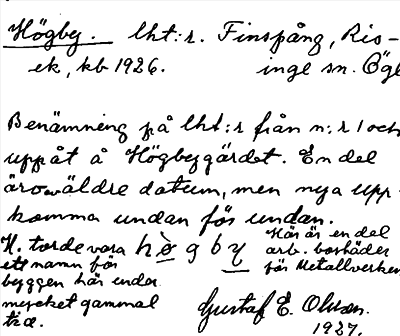 Högby. lht:r. Finspång, Ris-
ek, kb 1926. inge sn. Ögl
Benämning på lht:r från n:r 1 och
uppåt å Högbygärdet. En del
äro äldre datum, men nya upp-
komma undan för undan.
N. torde vara högby
ett namn för
byggen här under
mycket gammal
tid.
Här är en del
arb. bostäder
för Metallverken
Gustaf E. Olsson.
1927.